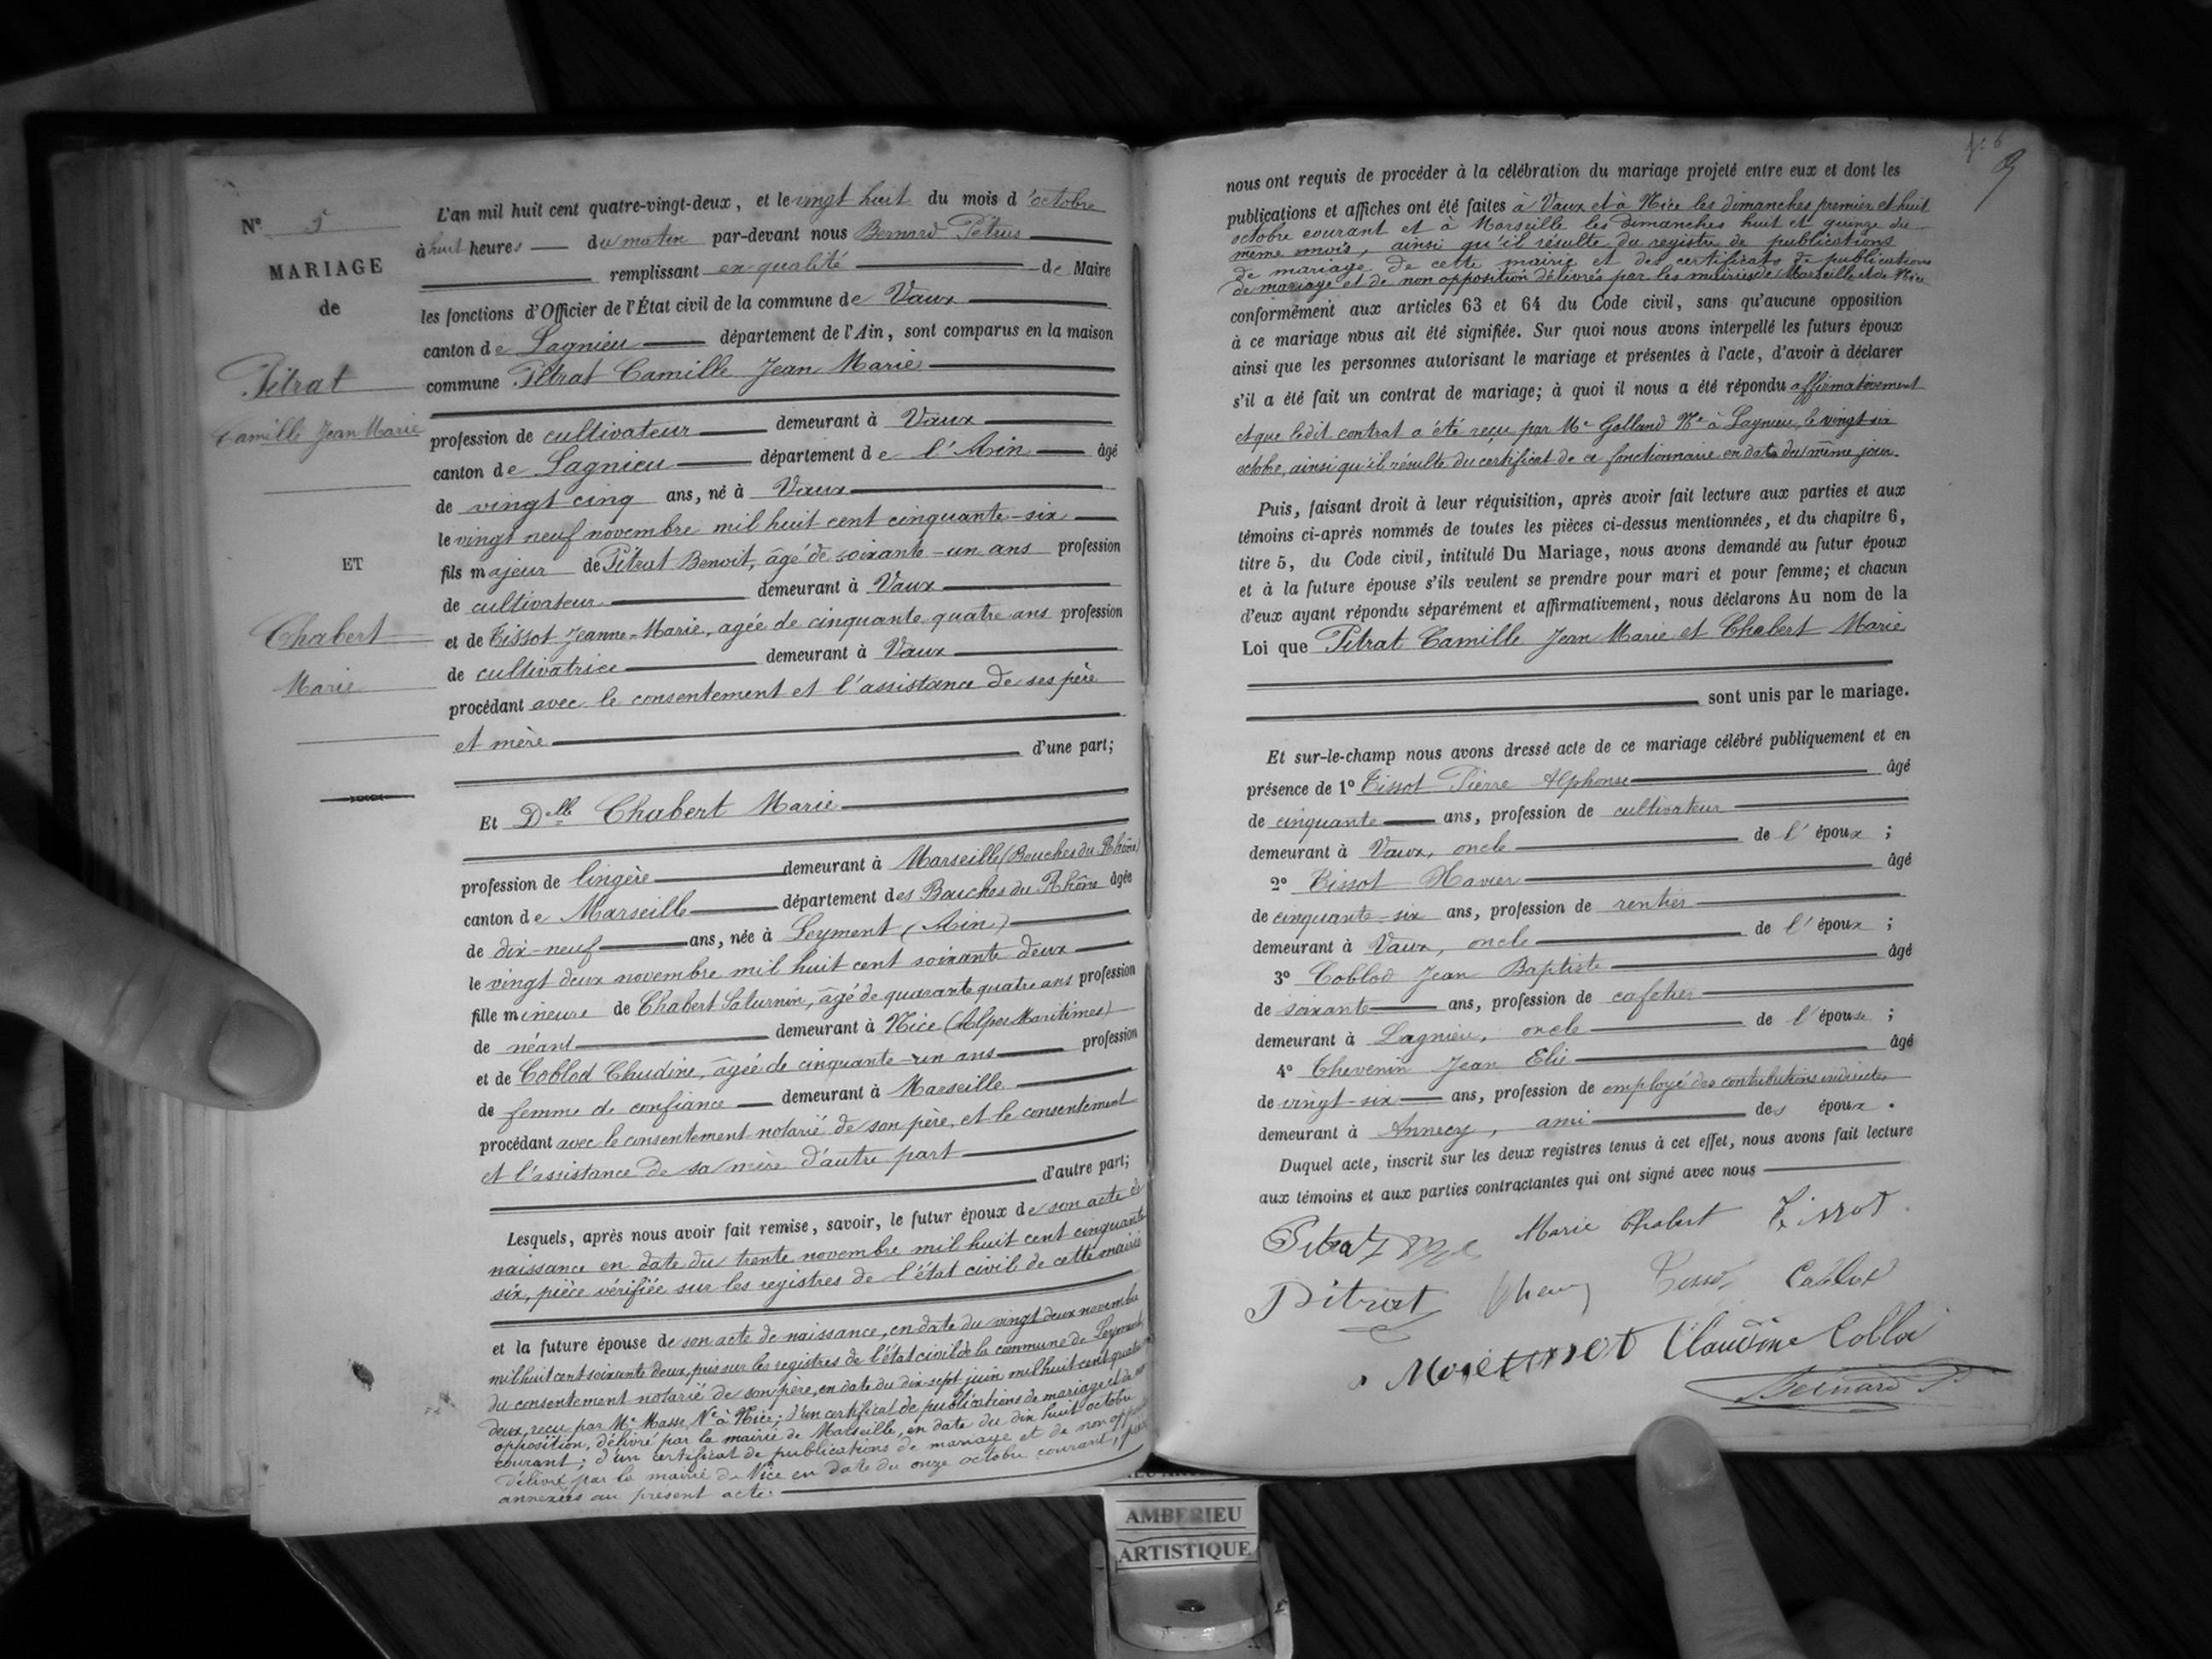 N° 5
MARIAGE
de
Pitrat
Camille Jean Marie
ET
Chabert
Marie
L'an mil huit cent quatre-vingt-deux, et le vingt huit du mois d'octobre
à huit heures du matin par-devant nous Bernard Pétrus
remplissant en qualité de Maire
les fonctions d'Officier de l'État civil de la commune de Vaux
canton de Lagnieu département de l'Ain, sont comparus en la maison
commune Pitrat Camille Jean Marie
profession de cultivateur demeurant à Vaux
canton de Lagnieu département de l'Ain âgé
de vingt cinq ans, né à Vaux
le vingt neuf novembre mil huit cent cinquante-six
fils majeur de Pitrat Benoit, âgé de soixante-un ans profession
de cultivateur demeurant à Vaux
et de Tissot Jeanne-Marie, agée de cinquante quatre ans profession
de cultivatrice demeurant à Vaux
procédant avec le consentement et l'assistance de ses père
et mère
d'une part;
Et Delle Chabert Marie
profession de lingère demeurant à Marseille (Bouches du Rhône)
canton de Marseille département des Bouches du Rhône âgée
de dix-neuf ans, née à Leyment (Ain)
le vingt deux novembre mil huit cent soixante deux
fille mineure de Chabert Saturnin, âgé de quarante quatre ans profession
de néant demeurant à Nice (Alpes Maritimes)
et de Coblod Claudine, âgée de cinquante-un ans profession
de femme de confiance demeurant à Marseille
procédant avec le consentement notarié de son père, et le consentement
et l'assistance de sa mère d'autre part
d'autre part;
Lesquels, après nous avoir fait remise, savoir, le futur époux de son acte de
naissance en date du trente novembre mil huit cent cinquante
six, pièce vérifiée sur les registres de l'état civil de cette mairie
et la future épouse de son acte de naissance, en date du vingt deux novembre
mil huit cent soixante deux, pris sur les registres de l'état civil de la commune de Leyment,
du consentement notarié de son père, en date du dix-sept juin mil huit cent quatre vingt
deux, reçu par Me Masse Ne à Nice; d'un certificat de publications de mariage et de non
opposition, délivré par la mairie de Marseille, en date du dix huit octobre
courant; d'un certificat de publications de mariage et de non opposition
délivré par la mairie de Nice en date du onze octobre courant,
annexées au présent acte.
fo 6
9
nous ont requis de procéder à la célébration du mariage projeté entre eux et dont les
publications et affiches ont été faites à Vaux et à Nice les dimanches premier et huit
octobre courant et à Marseille les dimanches huit et quinze du
même mois, ainsi qu'il résulte du registre de publications
de mariage de cette mairie et des certificats de publications
de mariage et de non opposition délivrés par les mairies de Marseille et de Nice
conformément aux articles 63 et 64 du Code civil, sans qu'aucune opposition
à ce mariage nous ait été signifiée. Sur quoi nous avons interpellé les futurs époux
ainsi que les personnes autorisant le mariage et présentes à l'acte, d'avoir à déclarer
s'il a été fait un contrat de mariage; à quoi il nous a été répondu affirmativement
et que ledit contrat a été reçu par Me Golland Ne à Lagnieu, le vingt six
octobre, ainsi qu'il résulte du certificat de ce fonctionnaire en date du même jour.
Puis, faisant droit à leur réquisition, après avoir fait lecture aux parties et aux
témoins ci-après nommés de toutes les pièces ci-dessus mentionnées, et du chapitre 6,
titre 5, du Code civil, intitulé Du Mariage, nous avons demandé au futur époux
et à la future épouse s'ils veulent se prendre pour mari et pour femme; et chacun
d'eux ayant répondu séparément et affirmativement, nous déclarons Au nom de la
Loi que Pitrat Camille Jean Marie et Chabert Marie
sont unis par le mariage.
Et sur-le-champ nous avons dressé acte de ce mariage célébré publiquement et en
présence de 1° Tissot Pierre Alphonse âgé
de cinquante ans, profession de cultivateur
demeurant à Vaux, oncle de l'époux ;
2° Tissot Xavier âgé
de cinquante-six ans, profession de rentier
demeurant à Vaux, oncle de l'époux ;
3° Coblod Jean Baptiste âgé
de soixante ans, profession de cafetier
demeurant à Lagnieu, oncle de l'épouse ;
4° Thevenin Jean Elie âgé
de vingt-six ans, profession de employé des contributions indirectes
demeurant à Annecy, ami des époux.
Duquel acte, inscrit sur les deux registres tenus à cet effet, nous avons fait lecture
aux témoins et aux parties contractantes qui ont signé avec nous
Pitrat Marie Chabert Tissot
Pitrat Tissot Coblod
Claudine Coblod
Bernard P
AMBERIEU
ARTISTIQUE